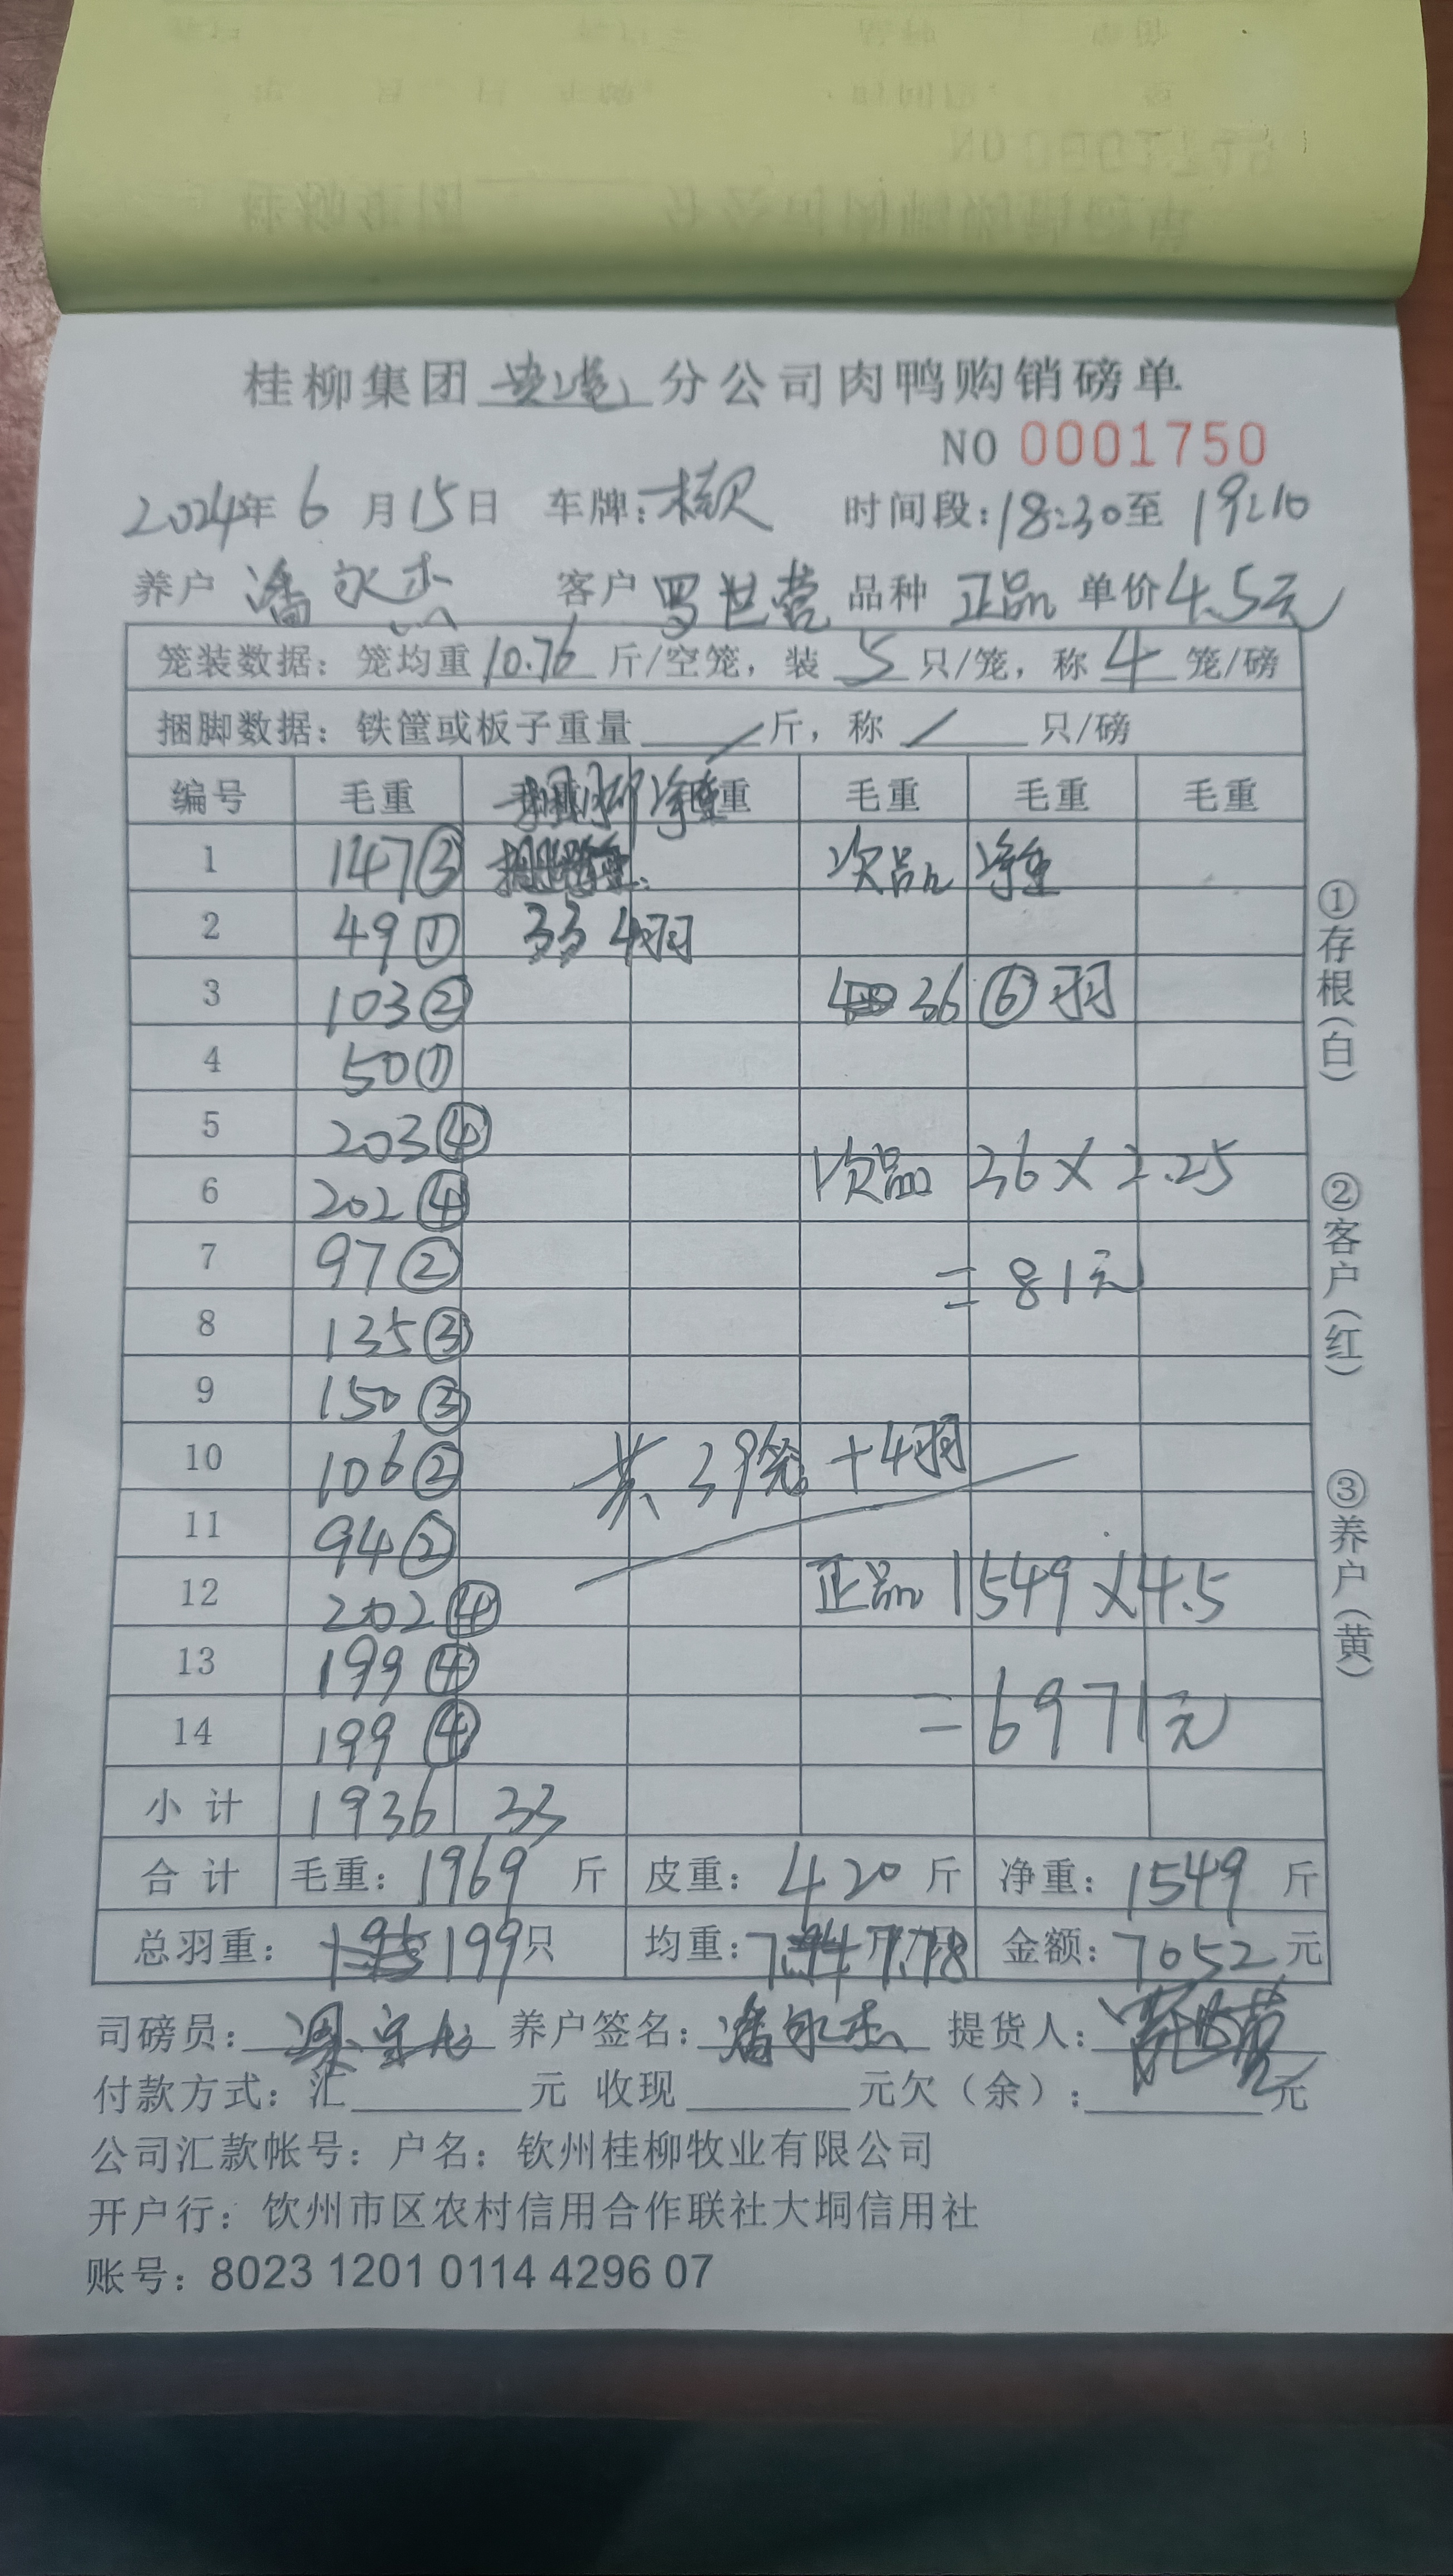 桂柳集团 分公司肉鸭购销磅单
NO 0001750
2024年 6 月 15 日 车牌: 时间段: 18:30 至 19:10
养户 潘永杰 客户 罗世营 品种 正品 单价 4.5元
笼装数据: 笼均重 10.76 斤/空笼, 装 5 只/笼, 称 4 笼/磅
捆脚数据: 铁筐或板子重量 / 斤, 称 / 只/磅
编号 毛重 净重 重 毛重 毛重 毛重
1 147③ 次品 净重
2 49① 33 4羽
3 103② 36 ⑥羽
4 50①
5 203④
6 202④ 次品 36×2.25
7 97② =81元
8 135③
9 150③
10 106② 共39笼+4羽
11 94②
12 202④ 正品 1549×4.5
13 199④
14 199④ =6971元
小计 1936 33
合计 毛重: 1969 斤 皮重: 420 斤 净重: 1549 斤
总羽重: 199只 均重: 7.78 金额: 7052 元
司磅员: 养户签名: 潘永杰 提货人:
付款方式: 汇 元 收现 元欠（余）: 元
公司汇款帐号: 户名: 钦州桂柳牧业有限公司
开户行: 钦州市区农村信用合作联社大垌信用社
账号: 8023 1201 0114 4296 07
①存根（白）
②客户（红）
③养户（黄）